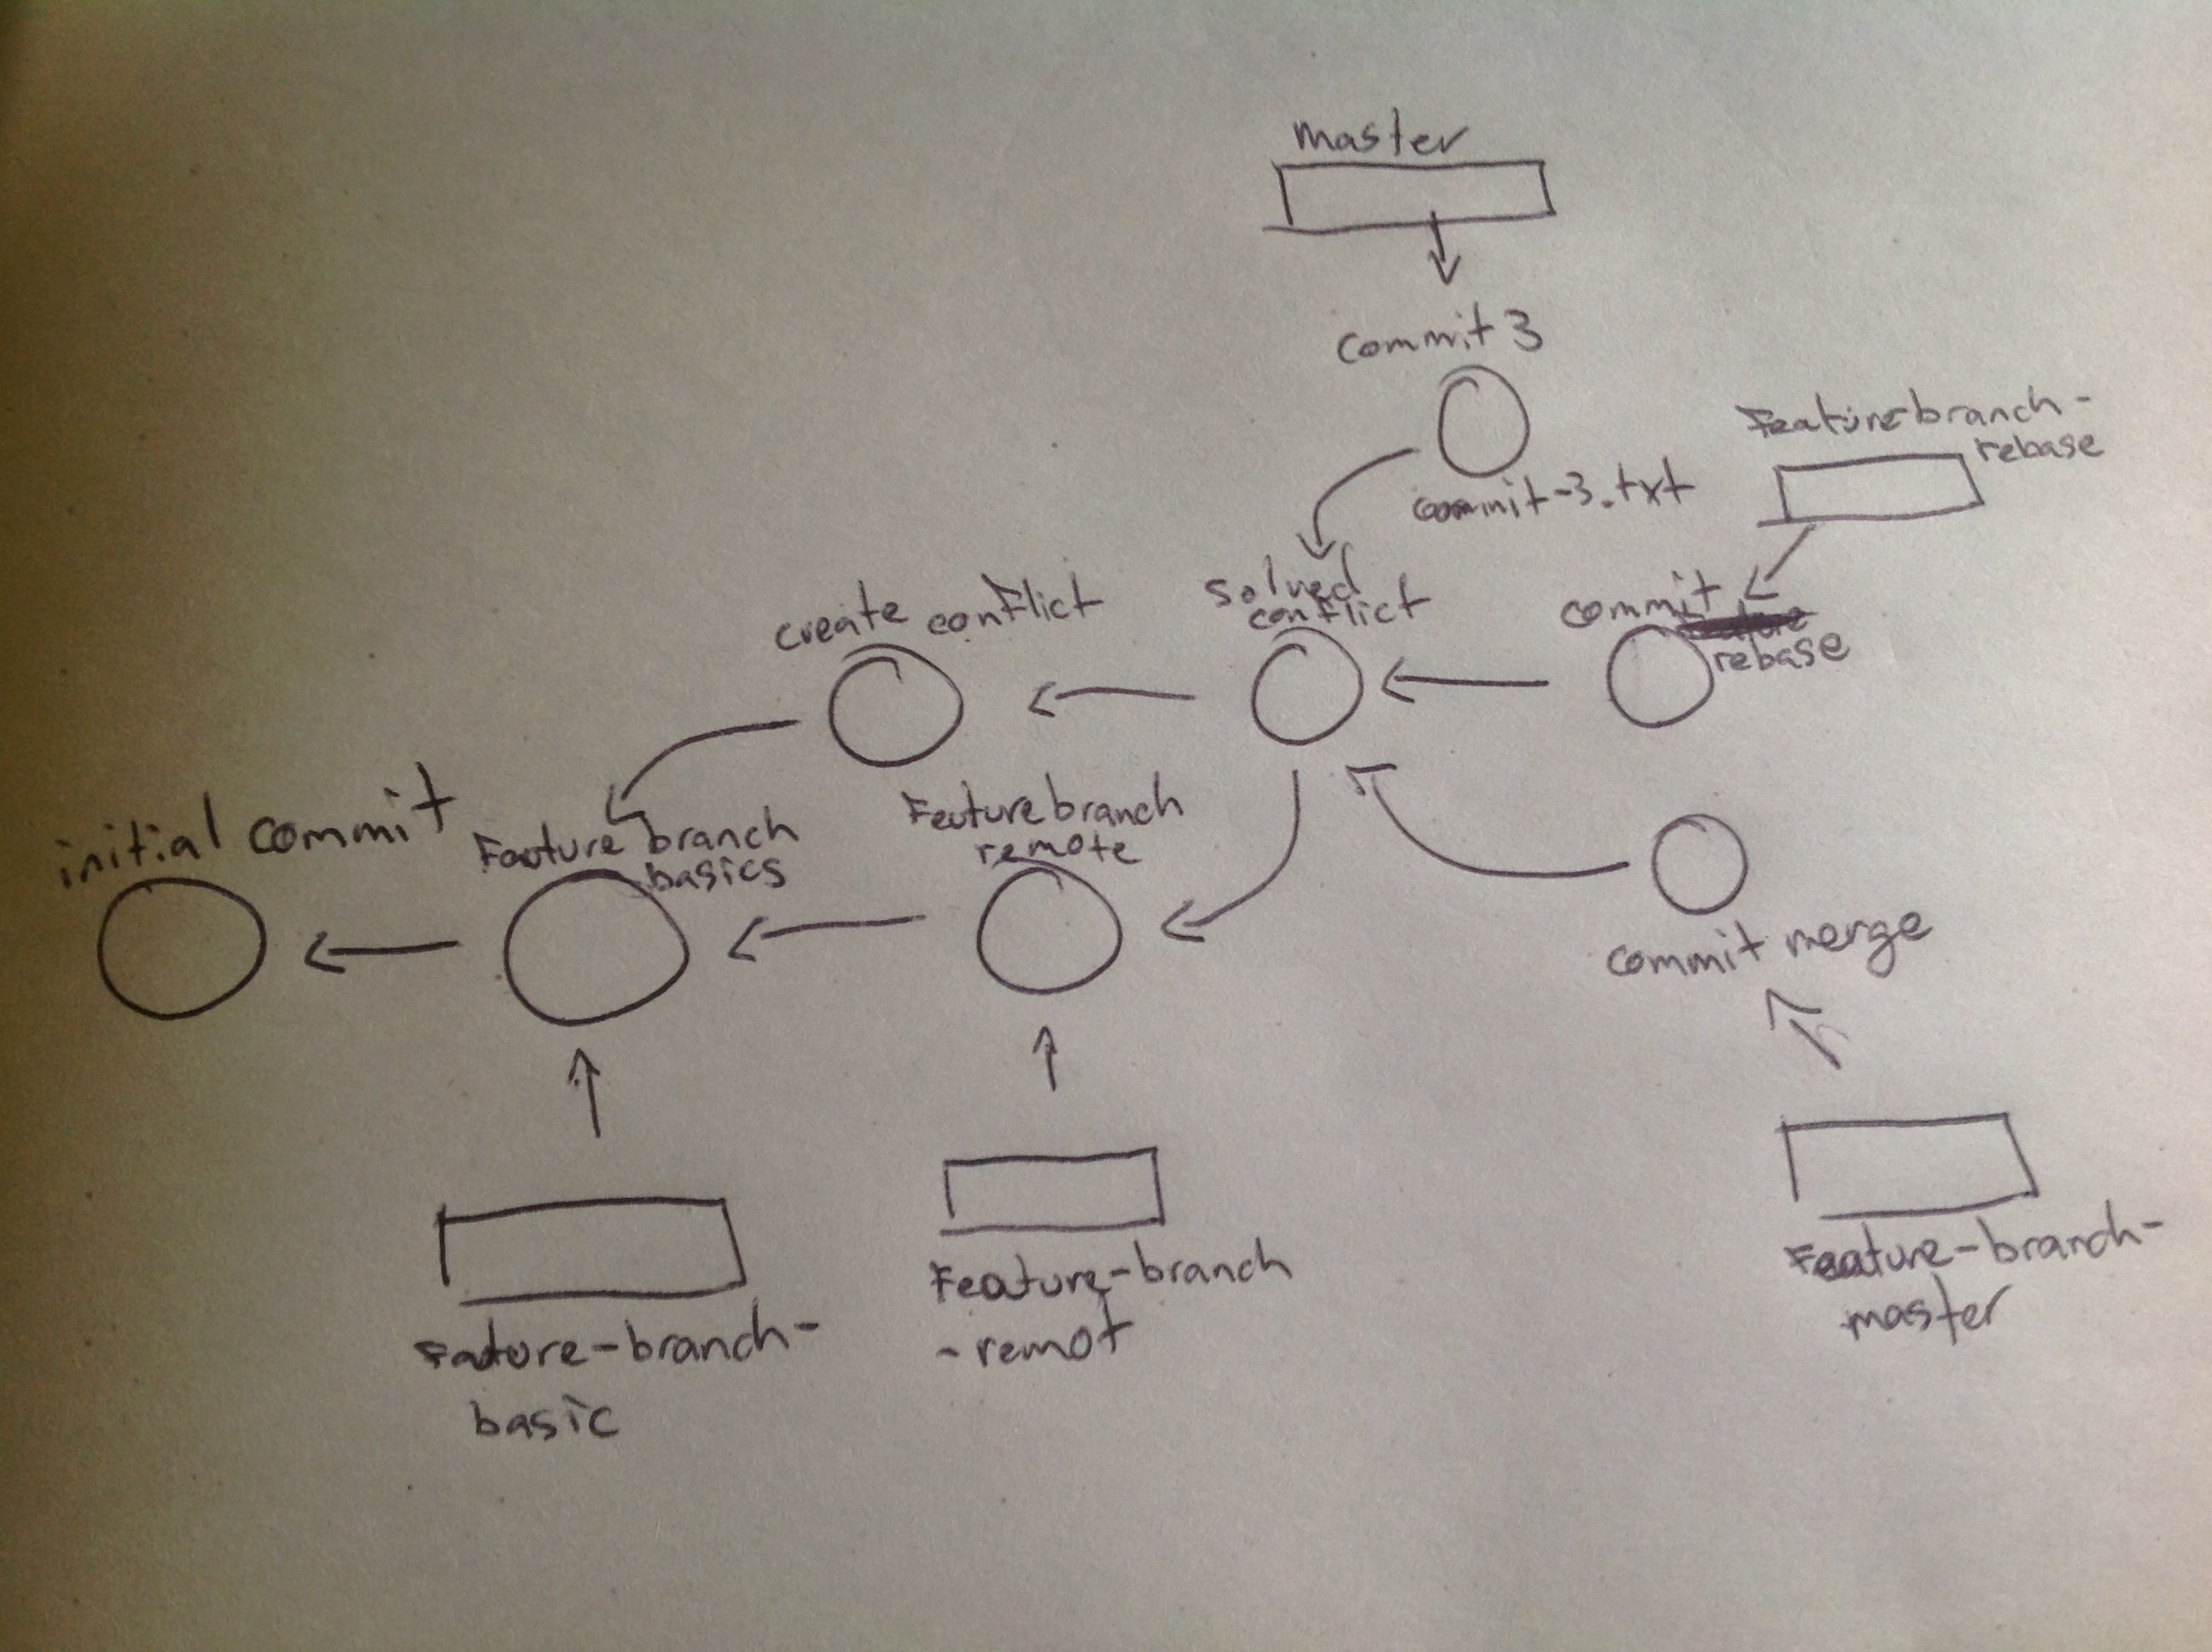 master
commit 3
commit-3.txt
Featurebranch-
rebase
create conflict
solved
conflict
commit
rebase
initial commit
Feature branch
basics
Feuturebranch
remote
commit merge
Feature-branch-
basic
Feature-branch
-remot
Feature-branch-
master